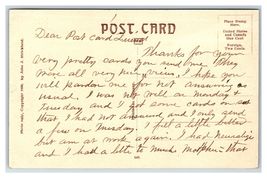 POST CARD
Place Stamp Here.
United States and Canada One Cent
Foreign, Two Cents
Dear Post card friend
Thanks for you
very pretty cards you send me. They
were all very nice views. I hope you
will pardon me for not answering as
usual. I was not well on Monday &
Tuesday and I got some cards on
that I had not answered and I only send
a few on Tuesday. I felt a little better
but am at work again. I had Neuralgia
and I had a to much that
Photo only, Copyright by John J.